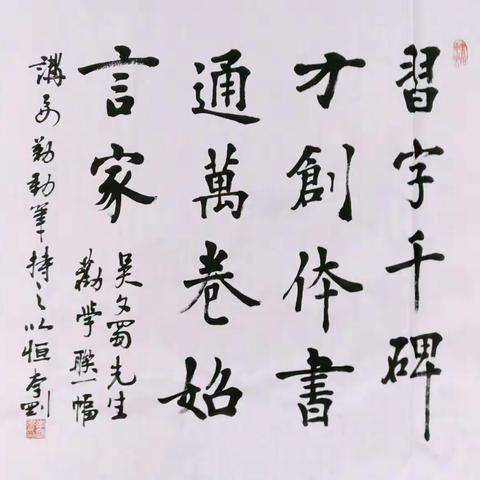 習字千碑
才創体書
通萬卷始
言家
吳丈蜀先生
勸學聯一幅
講 勤動筆持之以恒